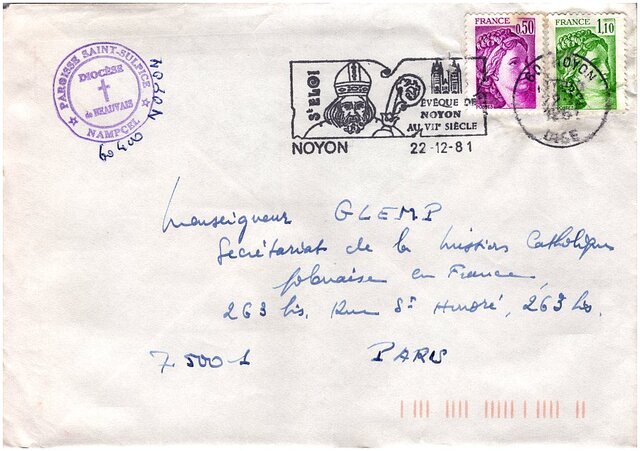 PAROISSE SAINT-SULPICE
DIOCÈSE
de BEAUVAIS
NAMPCEL
60400 NOYON
FRANCE 0,50
FRANCE 1,10
S'ELOI
ÉVÊQUE DE
NOYON
AU VIIe SIÈCLE
NOYON 22-12-81
NOYON
OISE
Monseigneur GLEMP
Secrétariat de la Mission Catholique
polonaise en France
263 bis, Rue St Honoré, 263 bis.
75001 PARIS